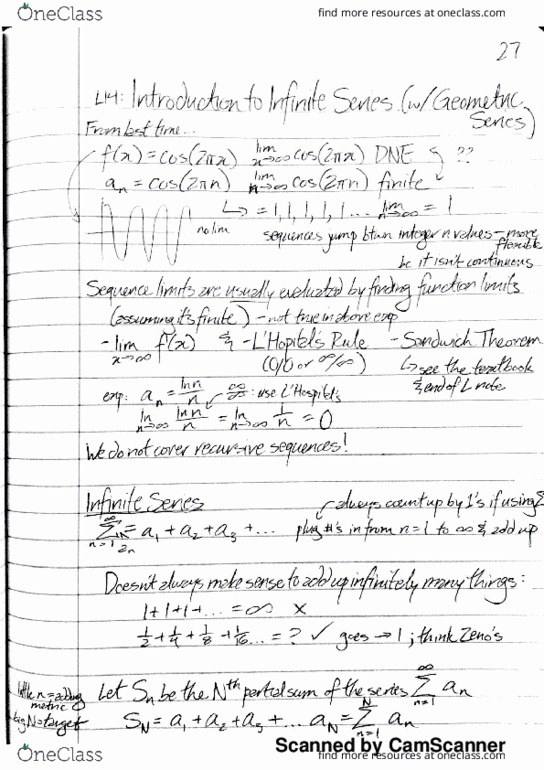 OneClass
find more resources at oneclass.com
27
L14: Introduction to Infinite Series (w/ Geometric Series)
From last time...
f(x) = cos(2πx) lim x→∞ cos(2πx) DNE ??
aₙ = cos(2πn) lim n→∞ cos(2πn) finite
↳ = 1, 1, 1, 1, 1... lim n→∞ = 1
no lim
sequences jump btwn integer n values – more flexible
bc it isn't continuous
Sequence limits are usually evaluated by finding function limits
(assuming it's finite) – not true in above exp
- lim x→∞ f(x) & - L'Hopitel's Rule - Sandwich Theorem
(0/0 or ∞/∞) ↳ see the textbook
& end of L note
exp: aₙ = ln n / n ∞/∞ : use L'Hospitel's
ln n→∞ ln n / n = ln n→∞ 1/n = 0
We do not cover recursive sequences!
Infinite Series
always count up by 1's if using Σ
∞ Σ n=1 aₙ = a₁ + a₂ + a₃ + ... plug #'s in from n=1 to ∞ & add up
Doesn't always make sense to add up infinitely many things:
1+1+1+... = ∞ ×
1/2 + 1/4 + 1/8 + 1/16 ... = ? ✓ goes → 1 ; think Zeno's
little n = adding metric
big N = target
Let Sₙ be the Nth partial sum of the series ∞ Σ n=1 aₙ
S_N = a₁ + a₂ + a₃ + ... a_N = N Σ n=1 aₙ
Scanned by CamScanner
OneClass
find more resources at oneclass.com